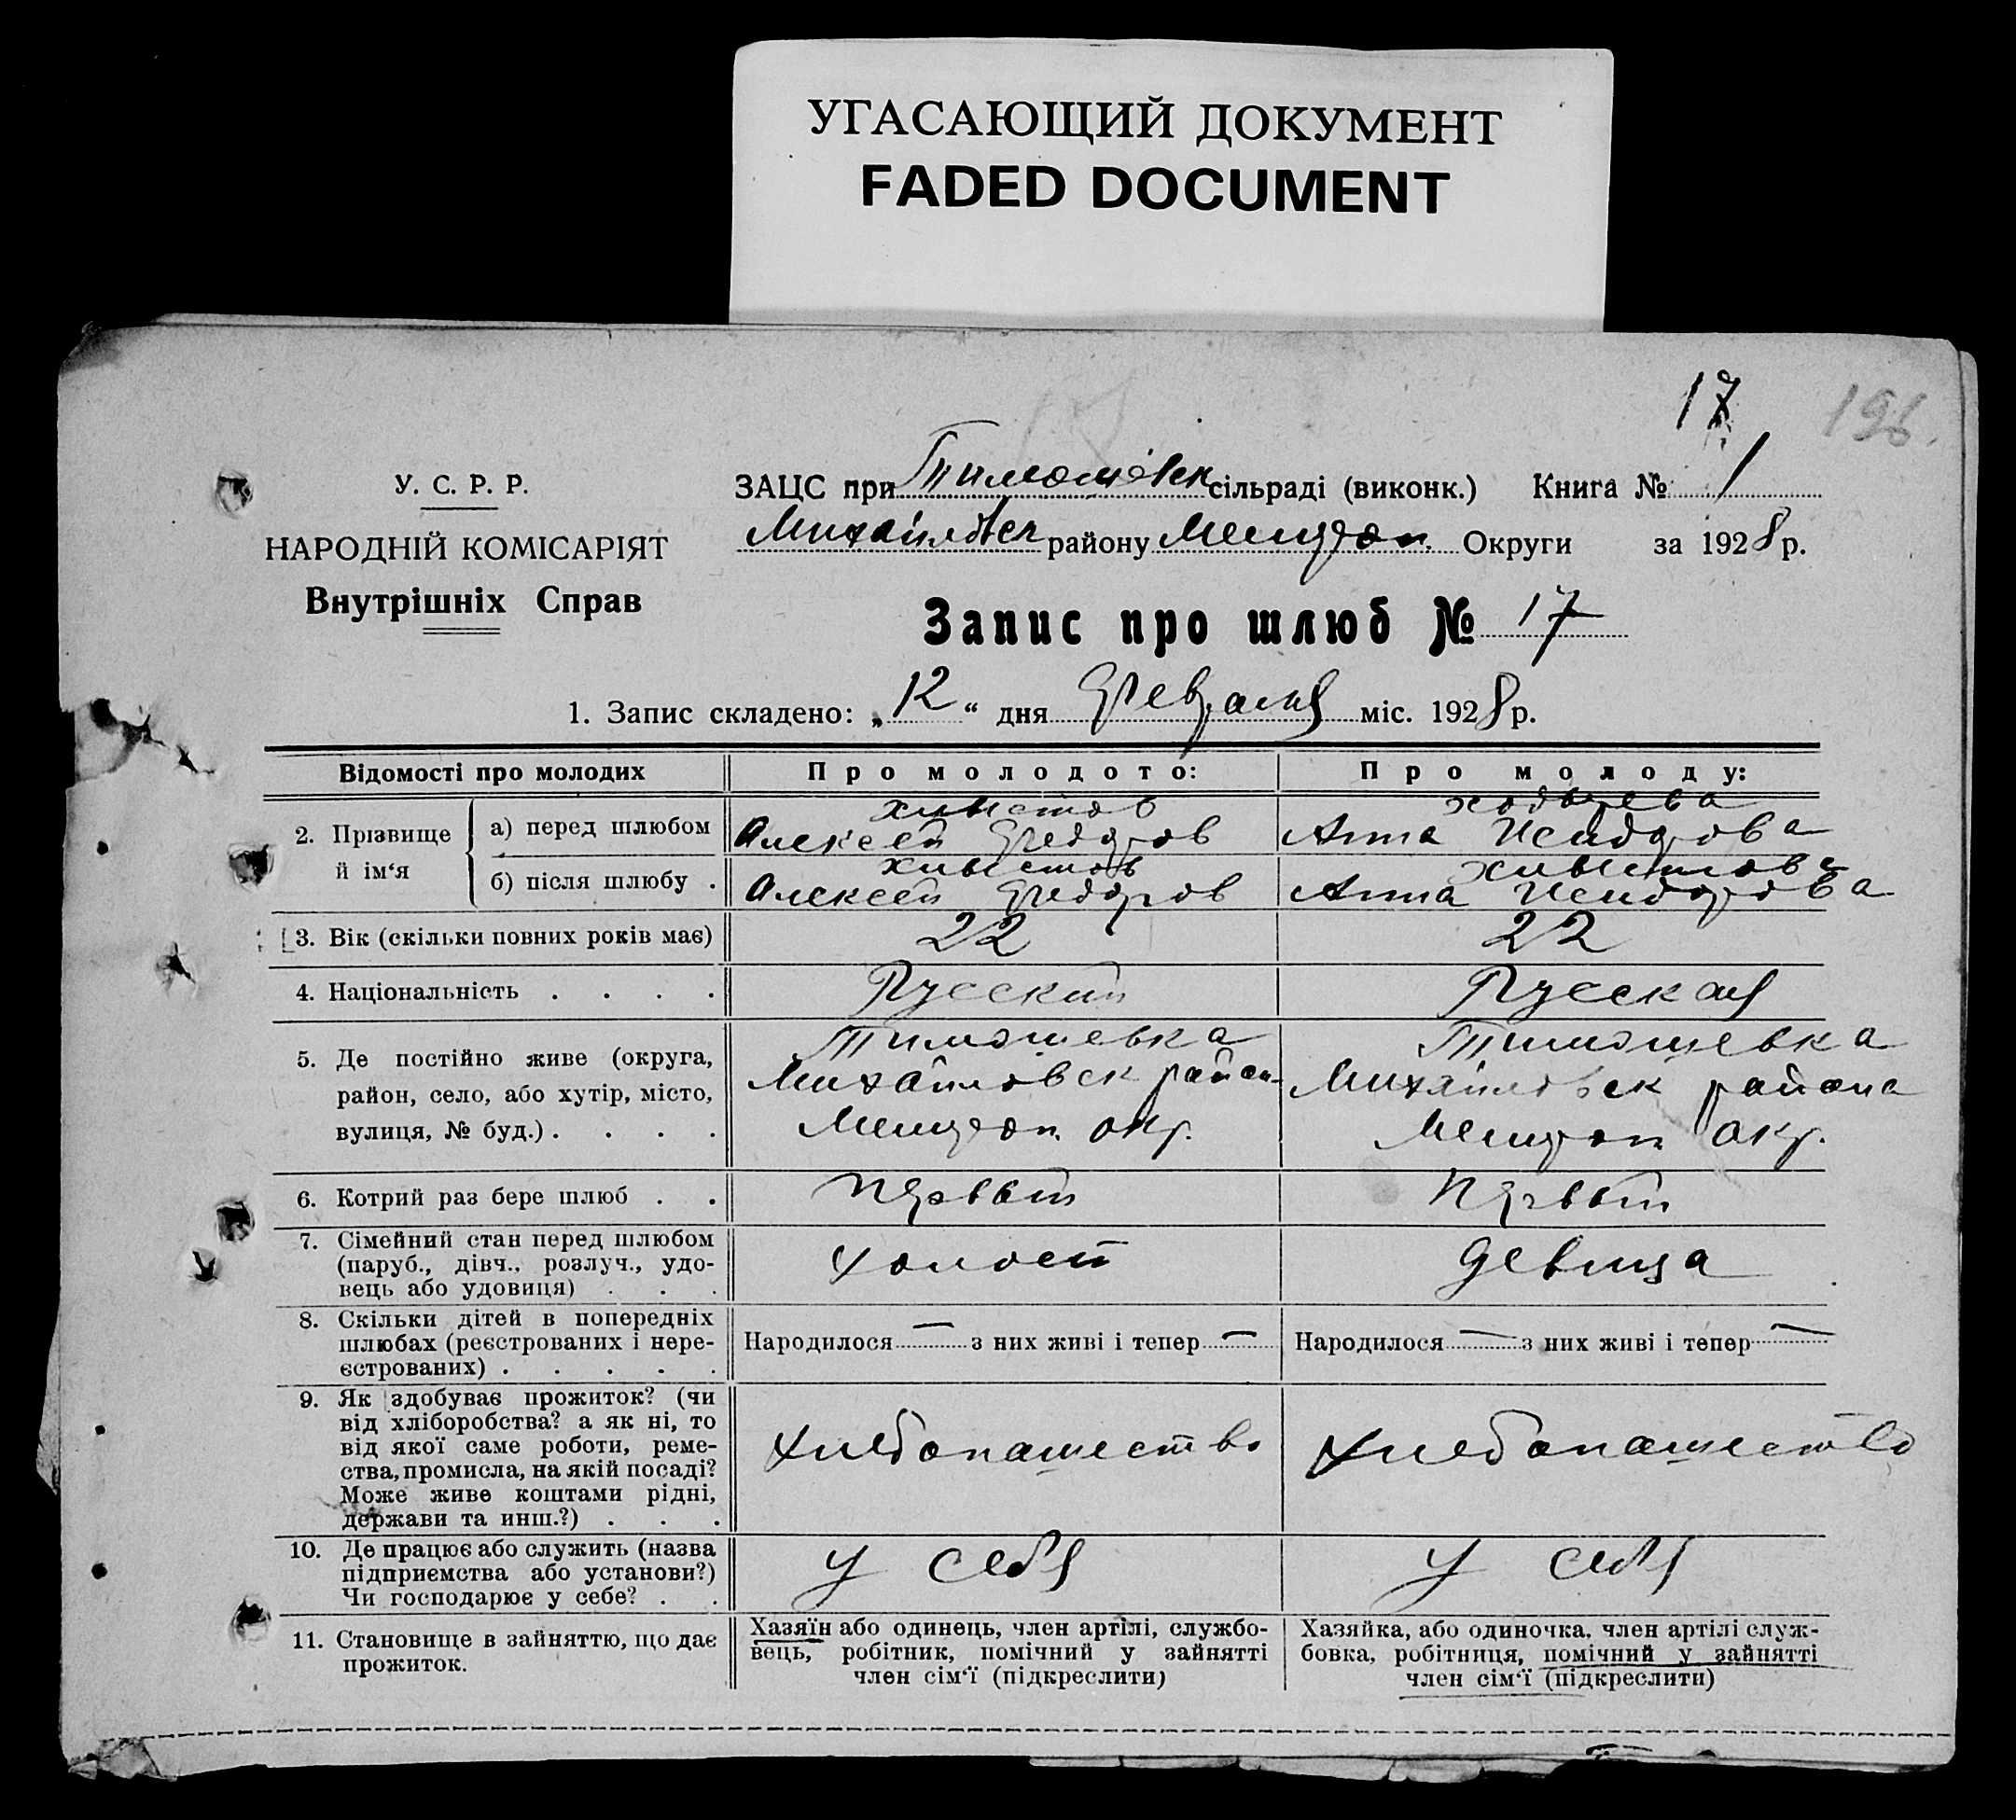 УГАСАЮЩИЙ ДОКУМЕНТ
FADED DOCUMENT
17
196.
У. С. Р. Р.
НАРОДНІЙ КОМІСАРІЯТ
Внутрішніх Справ
ЗАЦС при Тимошівск сільраді (виконк.) Книга № 1
Михайлівск району Мелитоп. Округи за 1928 р.
Запис про шлюб № 17
1. Запис складено: „12“ дня Февраля міс. 1928 р.
Відомості про молодих
Про молодого:
Про молоду:
2. Прізвище й ім‘я
а) перед шлюбом
Хлыстов
Алексей Федоров
Анна Исидорова
б) після шлюбу .
Хлыстов
Алексей Федоров
Хлыстова
Анна Исидорова
3. Вік (скільки повних років має)
22
22
4. Національність . . . .
Русский
Русская
5. Де постійно живе (округа,
район, село, або хутір, місто,
вулиця, № буд.) . . . .
Тимошевка
Михайловск район
Мелитоп. окр.
Тимошевка
Михайловск района
Мелитоп окр.
6. Котрий раз бере шлюб . .
Первый
Первый
7. Сімейний стан перед шлюбом
(паруб., дівч., розлуч., удо-
вець або удовиця) . . .
Холост
Девица
8. Скільки дітей в попередніх
шлюбах (реєстрованих і нере-
єстрованих) . . . . .
Народилося — з них живі і тепер —
Народилося — з них живі і тепер —
9. Як здобуває прожиток? (чи
від хліборобства? а як ні, то
від якої саме роботи, реме-
ства, промисла, на якій посаді?
Може живе коштами рідні,
держави та инш.?) . . .
Хлебопашество
Хлебопашество
10. Де працює або служить (назва
підприємства або установи?)
Чи господарює у себе? . .
У себя
У себя
11. Становище в зайняттю, що дає
прожиток.
Хазяїн або одинець, член артілі, службо-
вець, робітник, помічний у зайнятті
член сім‘ї (підкреслити)
Хазяйка, або одиночка, член артілі служ-
бовка, робітниця, помічний у зайнятті
член сім‘ї (підкреслити)